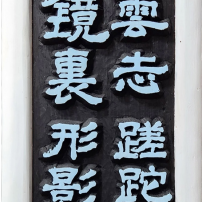 雲志蹉跎
鏡裏形影